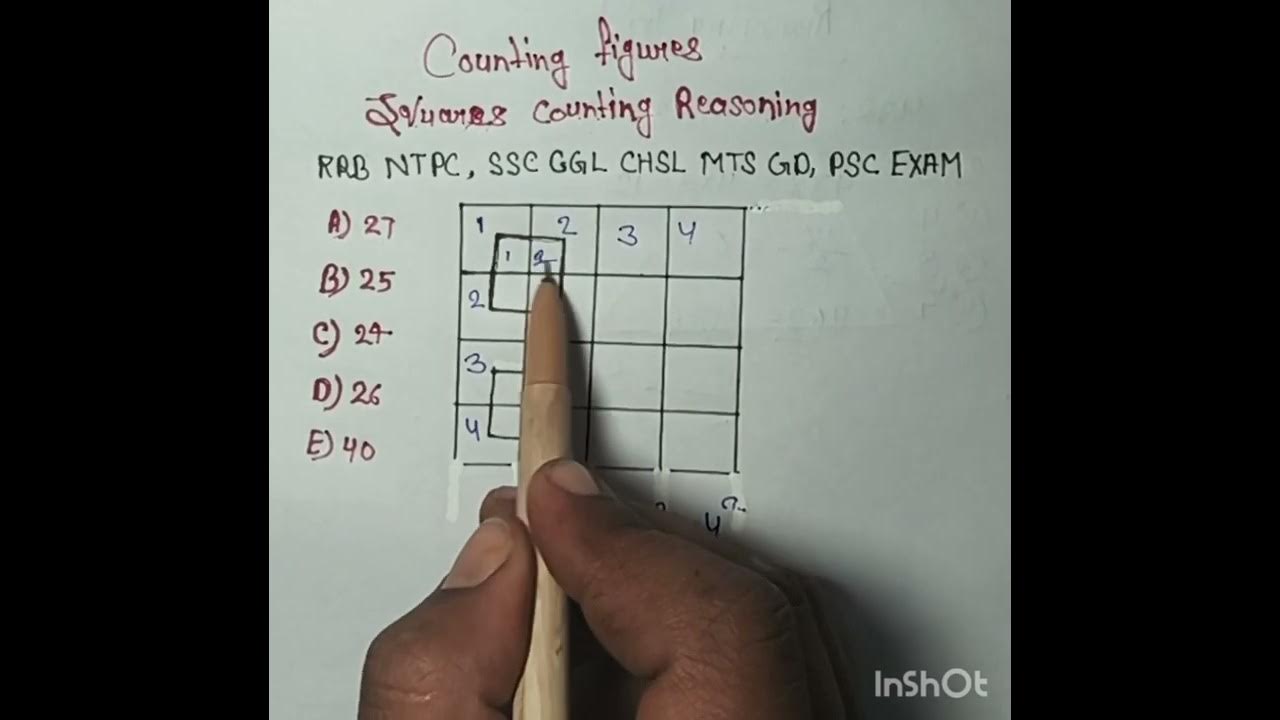 Counting figures
Squares Counting Reasoning
RRB NTPC, SSC CGL CHSL MTS GD, PSC EXAM
A) 27
B) 25
C) 24
D) 26
E) 40
1 2 3 4
1 2
2
3
4
4²
InShOt